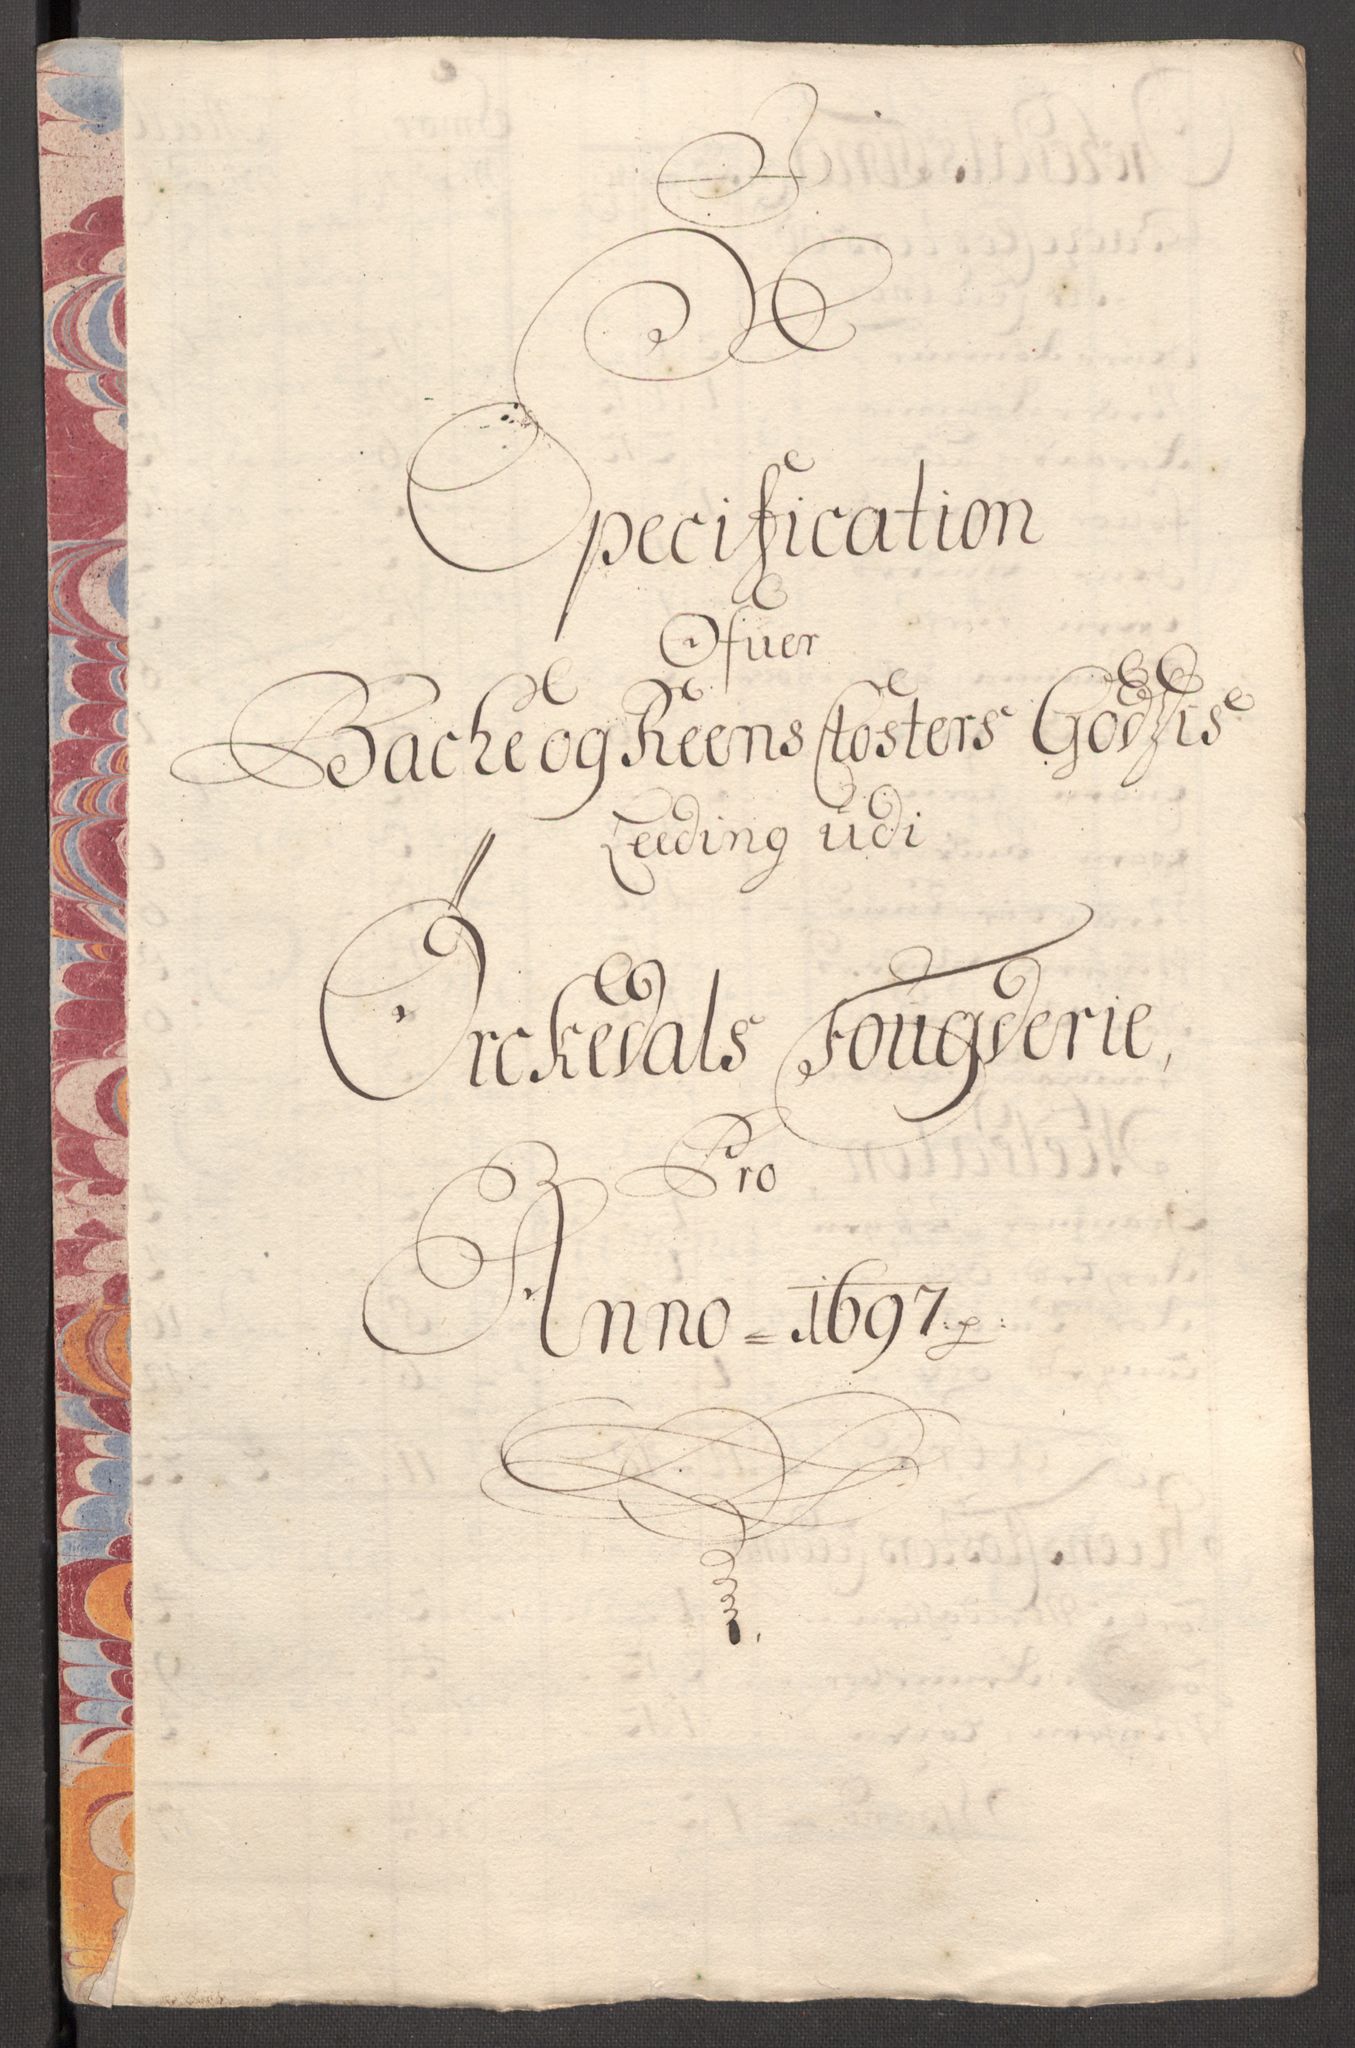 Specification
Ofuer
Bache og Reens Closters Godzis
Leeding udi
Orckedals Fougderie,
Pro
Anno = 1697